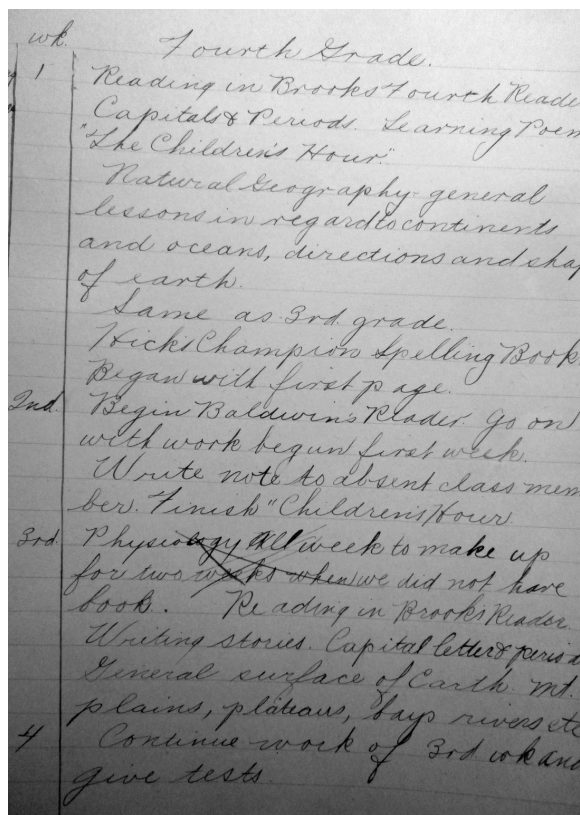 wk. Fourth Grade.
1 Reading in Brooks Fourth Reade
Capitals & Periods. Learning Poem
"The Children's Hour."
Natural Geography - general
lessons in regard to continents
and oceans, directions and shap
of earth.
Same as 3rd. grade.
Hicks Champion Spelling Book.
Began with first page.
2nd. Begin Baldwin's Reader. Go on
with work begun first week.
Write note to absent class mem
ber. Finish "Children's Hour
3rd. Physiology All week to make up
for two weeks when we did not have
book. Reading in Brooks Reader.
Writing stories. Capital letter & period
General surface of Earth. Mt.
plains, plateaus, bays rivers etc
4 Continue work of 3rd wk and
give tests.